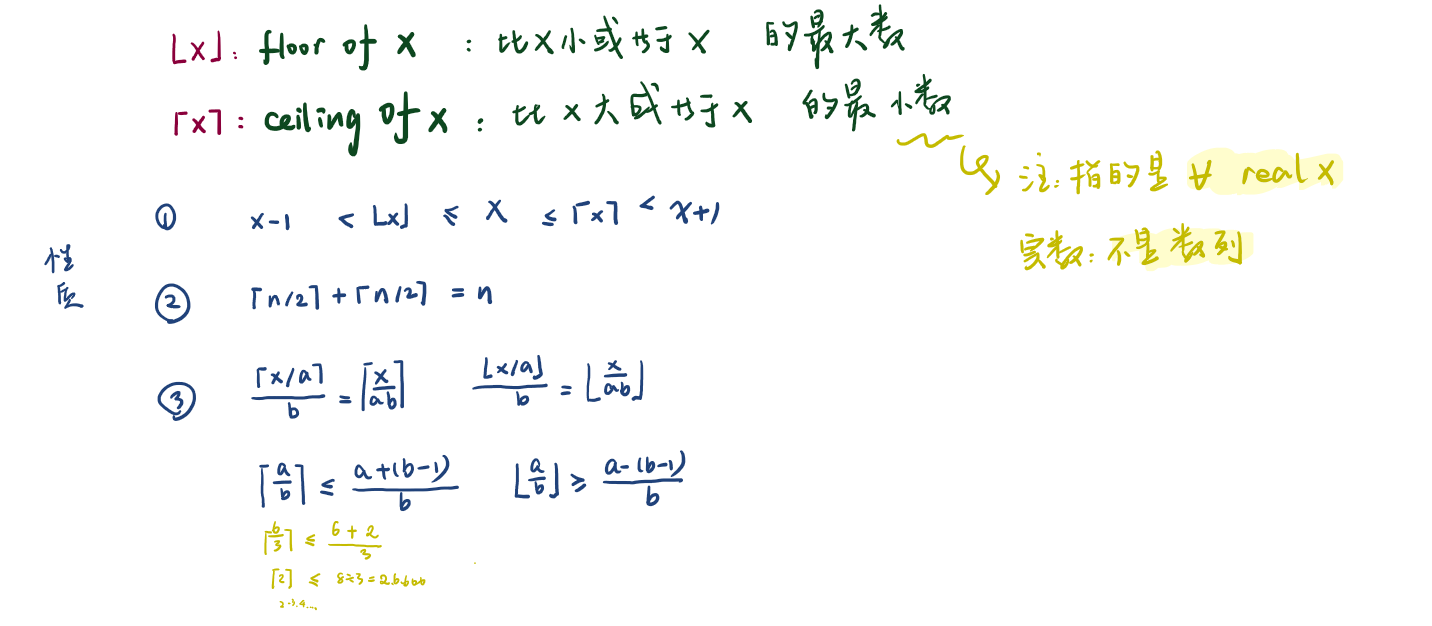 ⌊x⌋: floor of x : 比x小或等于x 的最大数
⌈x⌉: ceiling of x : 比x大或等于x 的最小数
注:指的是 ∀ real x
实数:不是数列
性质
① x-1 < ⌊x⌋ ≤ x ≤ ⌈x⌉ < x+1
② ⌈n/2⌉ + ⌈n/2⌉ = n
③ ⌈x/a⌉/b = ⌈x/ab⌉ ⌊x/a⌋/b = ⌊x/ab⌋
⌈a/b⌉ ≤ a+(b-1)/b ⌊a/b⌋ ≥ a-(b-1)/b
⌈6/3⌉ ≤ 6+2/3
⌈2⌉ ≤ 8÷3=2.6666